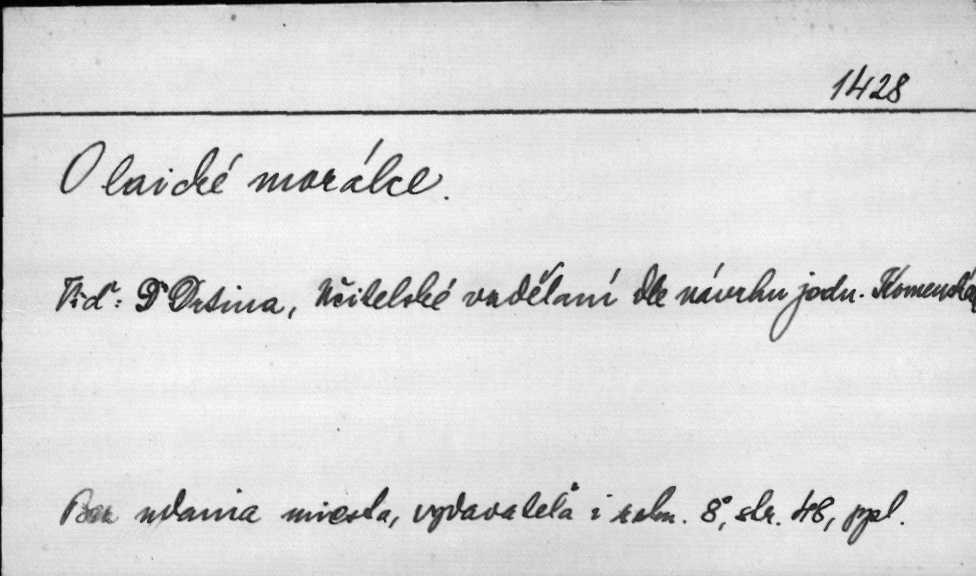 1428
O laické morálce.
Viď: Dr Drtina, Učitelské vzdělaní dle návrhu jedn. Komenský
Bez udania miesta, vydavateľa i roku. 8°, str. 48, ppl.